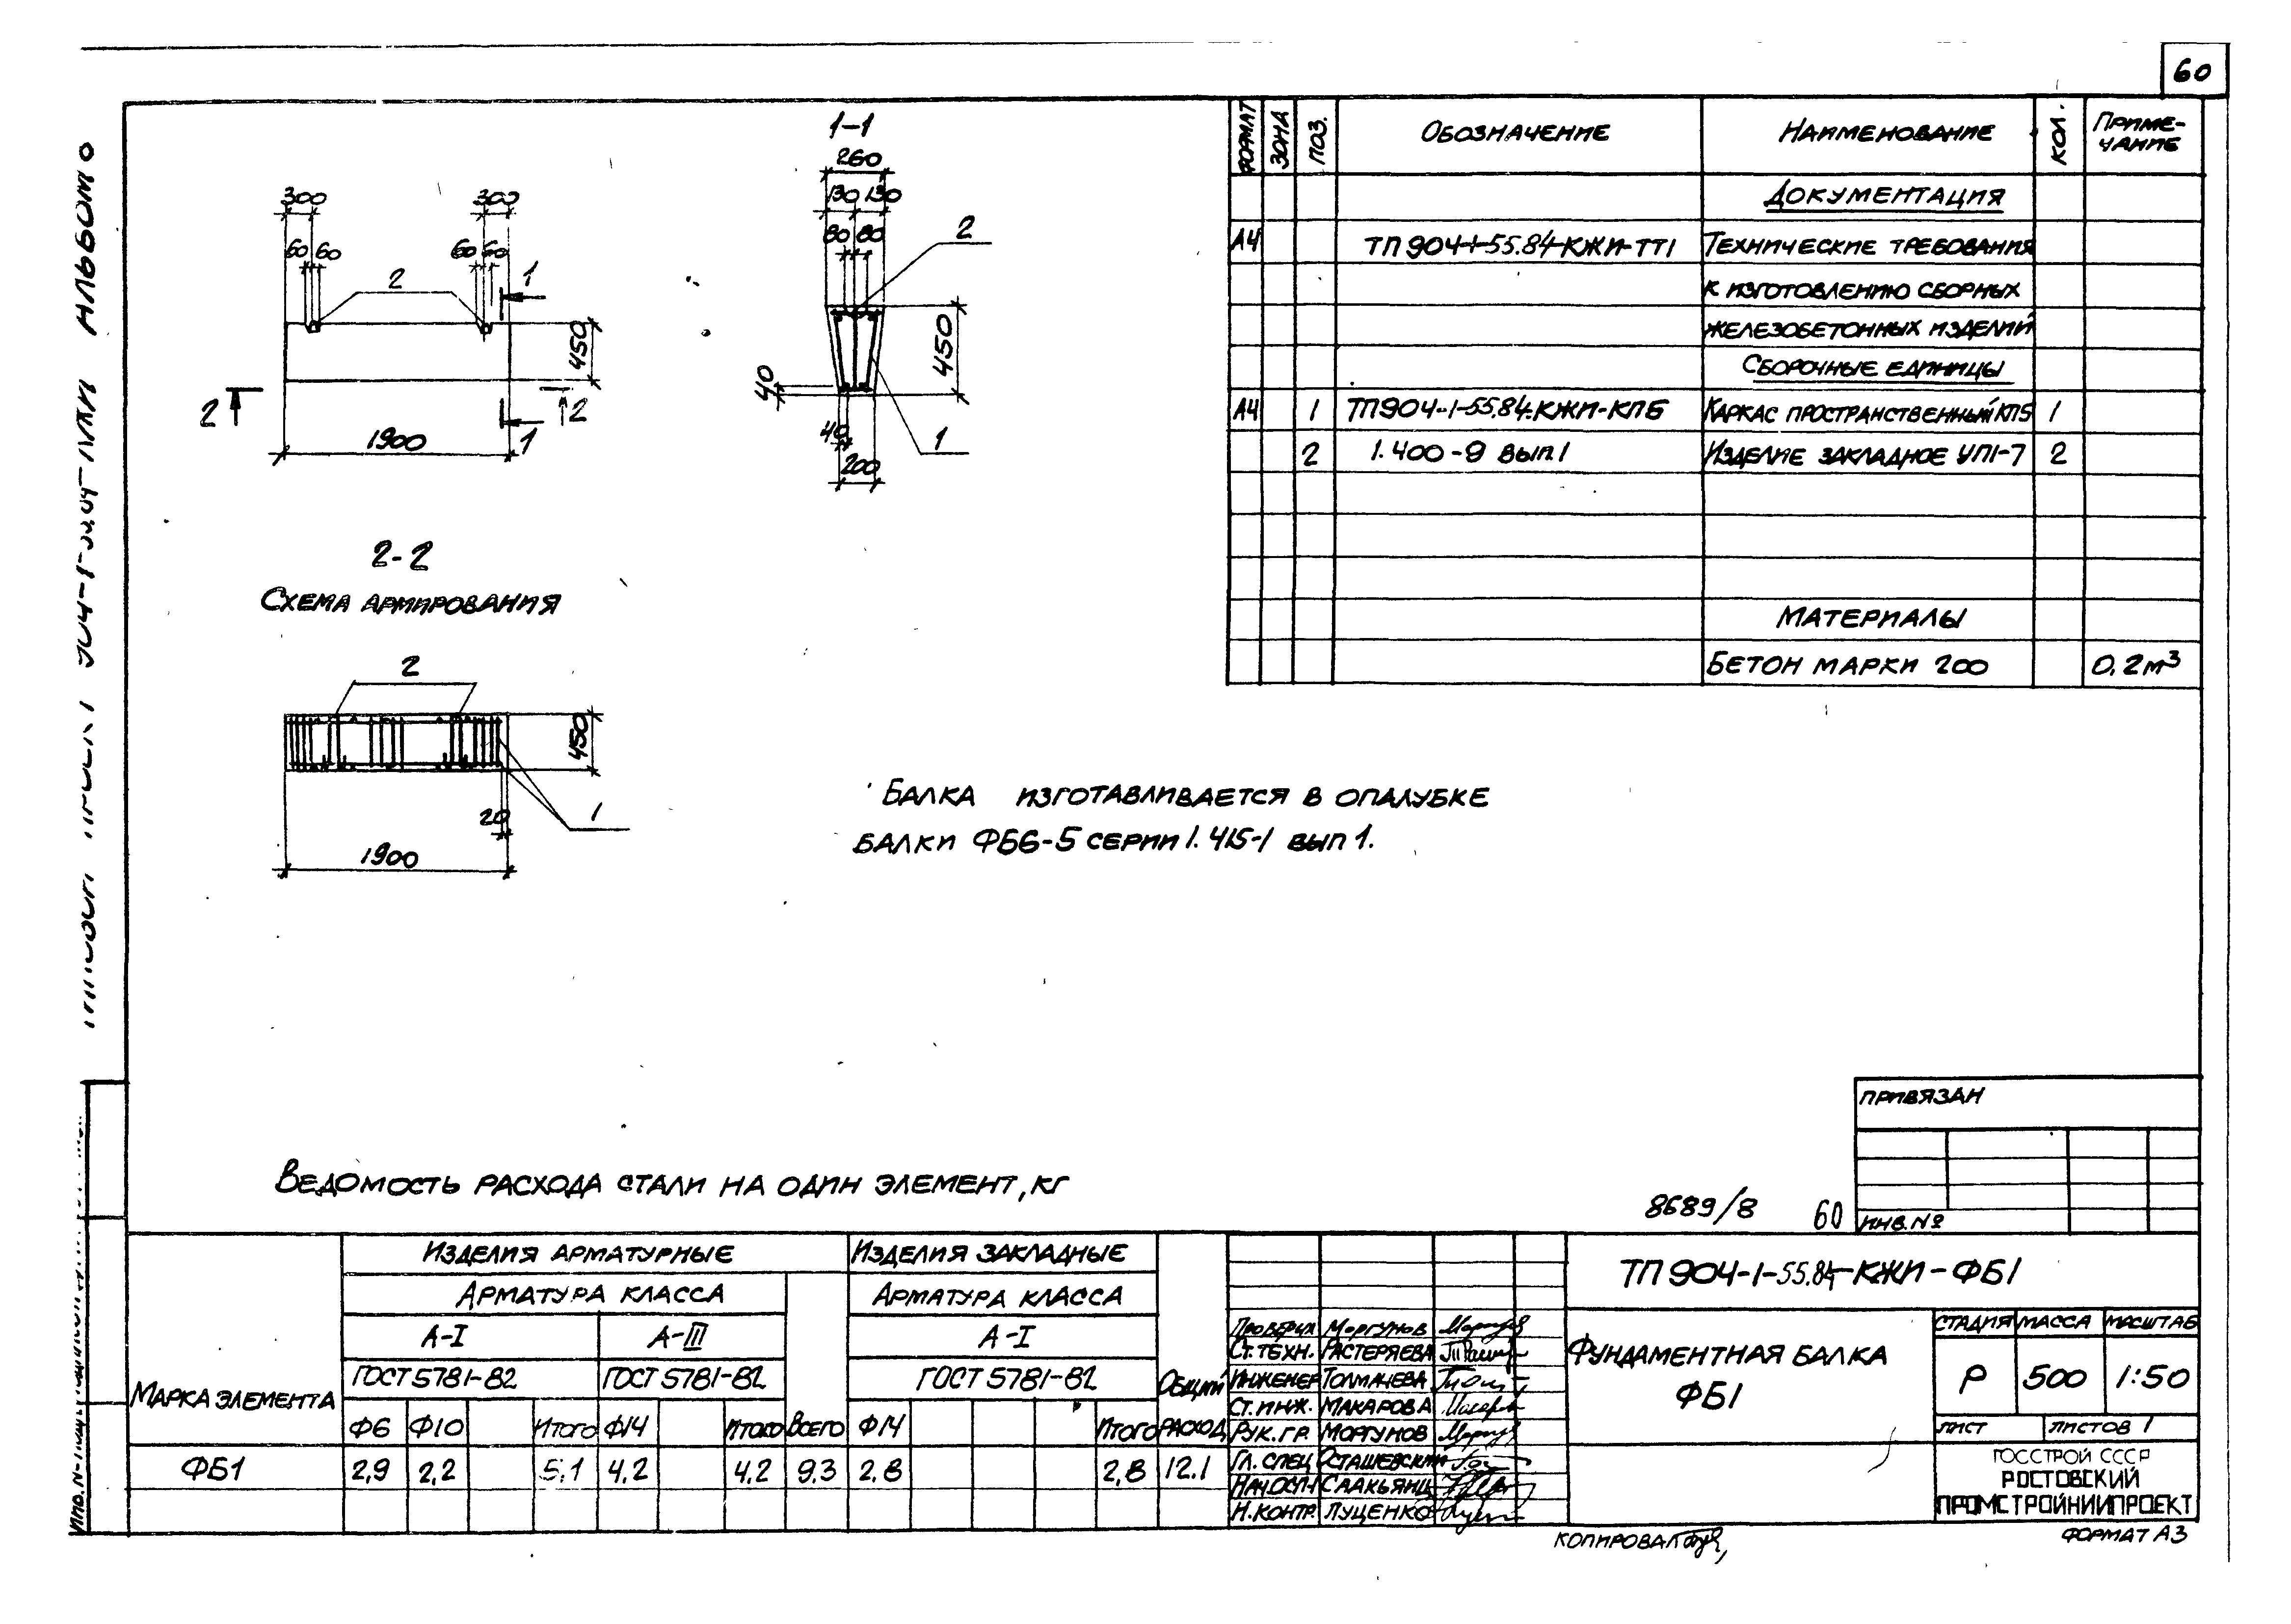 60
АЛЬБОМ 8
1-1
260
130 130
80 80
2
450
40
40
200
1
300
300
60 60
60 60
2
1
450
2
2
1900
1
2-2
СХЕМА АРМИРОВАНИЯ
2
450
20
1
1900
БАЛКА ИЗГОТАВЛИВАЕТСЯ В ОПАЛУБКЕ
БАЛКИ ФБ6-5 СЕРИИ 1.415-1 ВЫП 1.
ФОРМАТ ЗОНА ПОЗ. ОБОЗНАЧЕНИЕ НАИМЕНОВАНИЕ КОЛ. ПРИМЕ-
ЧАНИЕ
ДОКУМЕНТАЦИЯ
А4 ТП 904-1-55.84-КЖИ-ТТ1 ТЕХНИЧЕСКИЕ ТРЕБОВАНИЯ
К ИЗГОТОВЛЕНИЮ СБОРНЫХ
ЖЕЛЕЗОБЕТОННЫХ ИЗДЕЛИЙ
СБОРОЧНЫЕ ЕДИНИЦЫ
А4 1 ТП904-1-55.84-КЖИ-КП5 КАРКАС ПРОСТРАНСТВЕННЫЙ КП5 1
2 1.400-9 ВЫП 1 ИЗДЕЛИЕ ЗАКЛАДНОЕ УП1-7 2
МАТЕРИАЛЫ
БЕТОН МАРКИ 200 0.2м³
ПРИВЯЗАН
ИНВ. №
8689/8 60
ВЕДОМОСТЬ РАСХОДА СТАЛИ НА ОДИН ЭЛЕМЕНТ, КГ
МАРКА ЭЛЕМЕНТА
ИЗДЕЛИЯ АРМАТУРНЫЕ ИЗДЕЛИЯ ЗАКЛАДНЫЕ
АРМАТУРА КЛАССА АРМАТУРА КЛАССА
А-I А-III А-I
ГОСТ 5781-82 ГОСТ 5781-82 ГОСТ 5781-82
ОБЩИЙ РАСХОД
Ф6 Ф10 ИТОГО Ф14 ИТОГО ВСЕГО Ф14 ИТОГО
ФБ1 2,9 2,2 5,1 4,2 4,2 9,3 2,8 2,8 12.1
ПРОВЕРИЛ МОРГУНОВ
СТ. ТЕХН. РАСТЕРЯЕВА
ИНЖЕНЕР ТОЛМАЧЕВА
СТ. ИНЖ. МАКАРОВА
РУК. ГР. МОРГУНОВ
ГЛ. СПЕЦ ОСТАШЕВСКИЙ
СААКЬЯНЦ
Н. КОНТР. ЛУЦЕНКО
ТП 904-1-55.84-КЖИ-ФБ1
ФУНДАМЕНТНАЯ БАЛКА
ФБ1
СТАДИЯ МАССА МАСШТАБ
Р 500 1:50
ЛИСТ ЛИСТОВ 1
ГОССТРОЙ СССР
РОСТОВСКИЙ
ПРОМСТРОЙНИИПРОЕКТ
КОПИРОВАЛ
ФОРМАТ А3